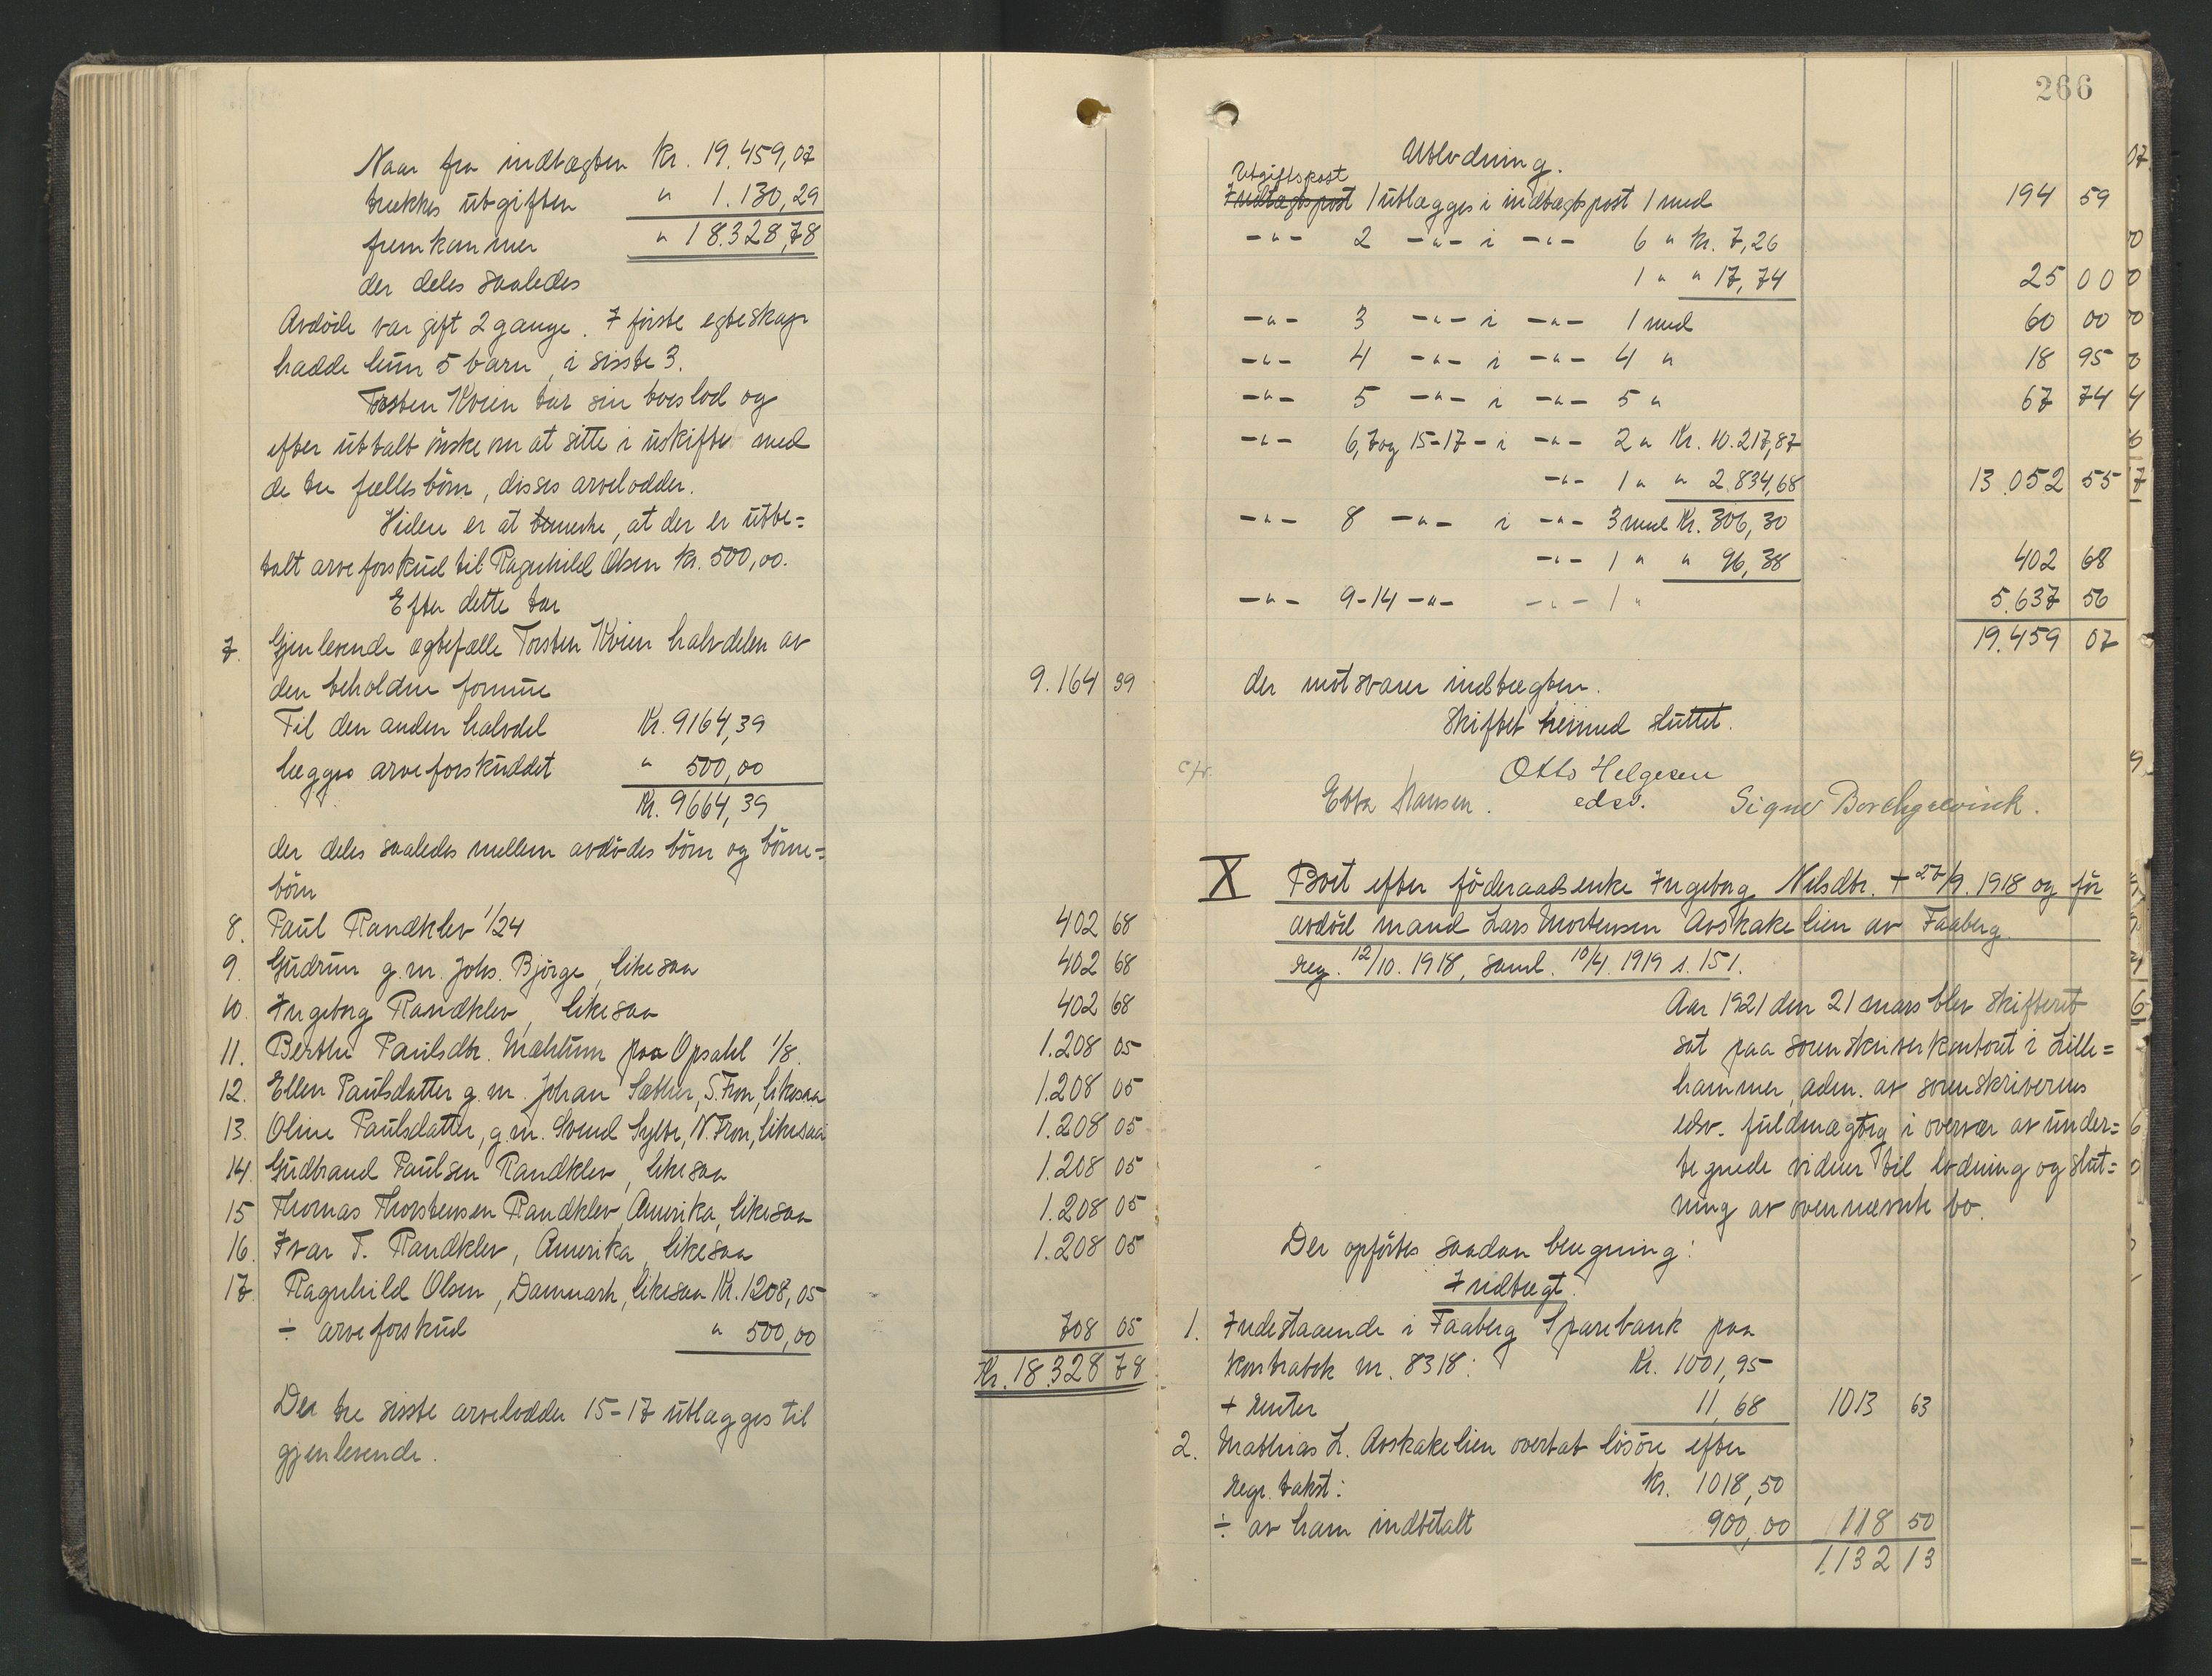 Naar fra indtægten Kr. 19.459,07
trækkes utgiften " 1.130,29
fremkommer " 18.328,78
der deles saaledes
Avdøde var gift 2 gange. I første egteskap
hadde hun 5 barn, i sisste 3.
Torsten Kvien tar sin boeslod og
efter uttalt ønske om at sitte i uskifte med
de tre fællesbörn, disses arvelodder.
Videre er at bemerke, at der er utbe=
talt arveforskud til Ragnhild Olsen kr. 500,00.
Efter dette tar
7. Gjenlevende egtefælle Torsten Kvien halvdelen av
den beholdne formue 9.164 39
Til den anden halvdel Kr. 9164,39
lægges arveforskuddet " 500,00
Kr. 9664,39
der deles saaledes mellem avdødes börn og börne=
börn
8. Paul Randklev 1/24 402 68
9. Gudrun g.m. Johs. Bjørge, likesaa 402 68
10. Ingeborg Randklev, likesaa 402 68
11. Berthe Paulsdtr. Mæhlum paa Opsahl 1/8. 1.208 05
12. Ellen Paulsdatter g.m. Johan Sæther, S. Fron, likesaa 1.208 05
13. Oline Paulsdatter, g.m. Svend Sylte, N. Fron, likesaa 1.208 05
14. Gudbrand Paulsen Randklev, likesaa 1.208 05
15 Thomas Thorstensen Randklev, Amerika, likesaa 1.208 05
16. Ivar T. Randklev, Amerika, likesaa 1.208 05
17. Ragnhild Olsen, Danmark, likesaa Kr. 1208,05
÷ arveforskud " 500,00 708 05
Kr. 18.328 78
De tre sisste arvelodder 15-17 utlægges til
gjenlevende.
266
Utlodning.
Utgiftspost
Indtægtspost 1 utlægges i indtægtspost 1 med 194 59
-"- 2 -"- i -"- 6 " kr. 7,26
1 " " 17,74 25 00
-"- 3 -"- i -"- 1 med 60 00
-"- 4 -"- i -"- 4 " 18 95
-"- 5 -"- i -"- 5 " 67 74
-"- 6,7 og 15-17 - i -"- 2 " Kr. 10.217,87
-"- 1 " " 2.834,68 13.052 55
-"- 8 -"- i -"- 3 med Kr. 306,30
-"- 1 " " 96,38 402 68
-"- 9-14 -"- -"- 1 " 5.637 56
19.459 07
der motsvarer indtægten.
Skiftet hermed sluttet.
Otto Helgesen
edsv.
Ebba Hansen. Signe Borchgrevink.
X Boet efter føderaadsenke Ingeborg Nilsdtr. + 27/9. 1918 og før
avdød mand Lars Mortensen Avskakelien av Faaberg.
reg. 12/10. 1918, saml. 10/4. 1919 s. 151.
Aar 1921 den 21 mars blev skifteret
sat paa sorenskriverkontoret i Lille=
hammer, adm. av sorenskriverens
edsv. fuldmægtig i overvær av under=
tegnede vidner til lodning og slut=
ning av ovennævnte bo.
Der opførtes saadan beregning:
Indtægt.
1. Indestaaende i Faaberg Sparebank paa
kontrabok nr. 8318: Kr. 1001,95
+ renter 11,68 1013 63
2. Mathias L. Avskakelien overtat løsøre efter
regr. takst: kr. 1018,50
÷ av ham indbetalt 900,00 118 50
1.132 13